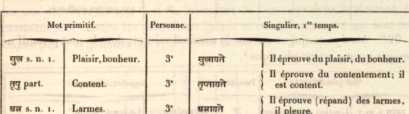 Mot primitif. Personne. Singulier, 1er temps.
सुख s. n. 1. Plaisir, bonheur. 3e सुखायते Il éprouve du plaisir, du bonheur.
part. Content. 3e तृप्तायते Il éprouve du contentement; il
est content.
s. n. 1. Larmes. 3e Il éprouve (répand) des larmes,
il pleure.